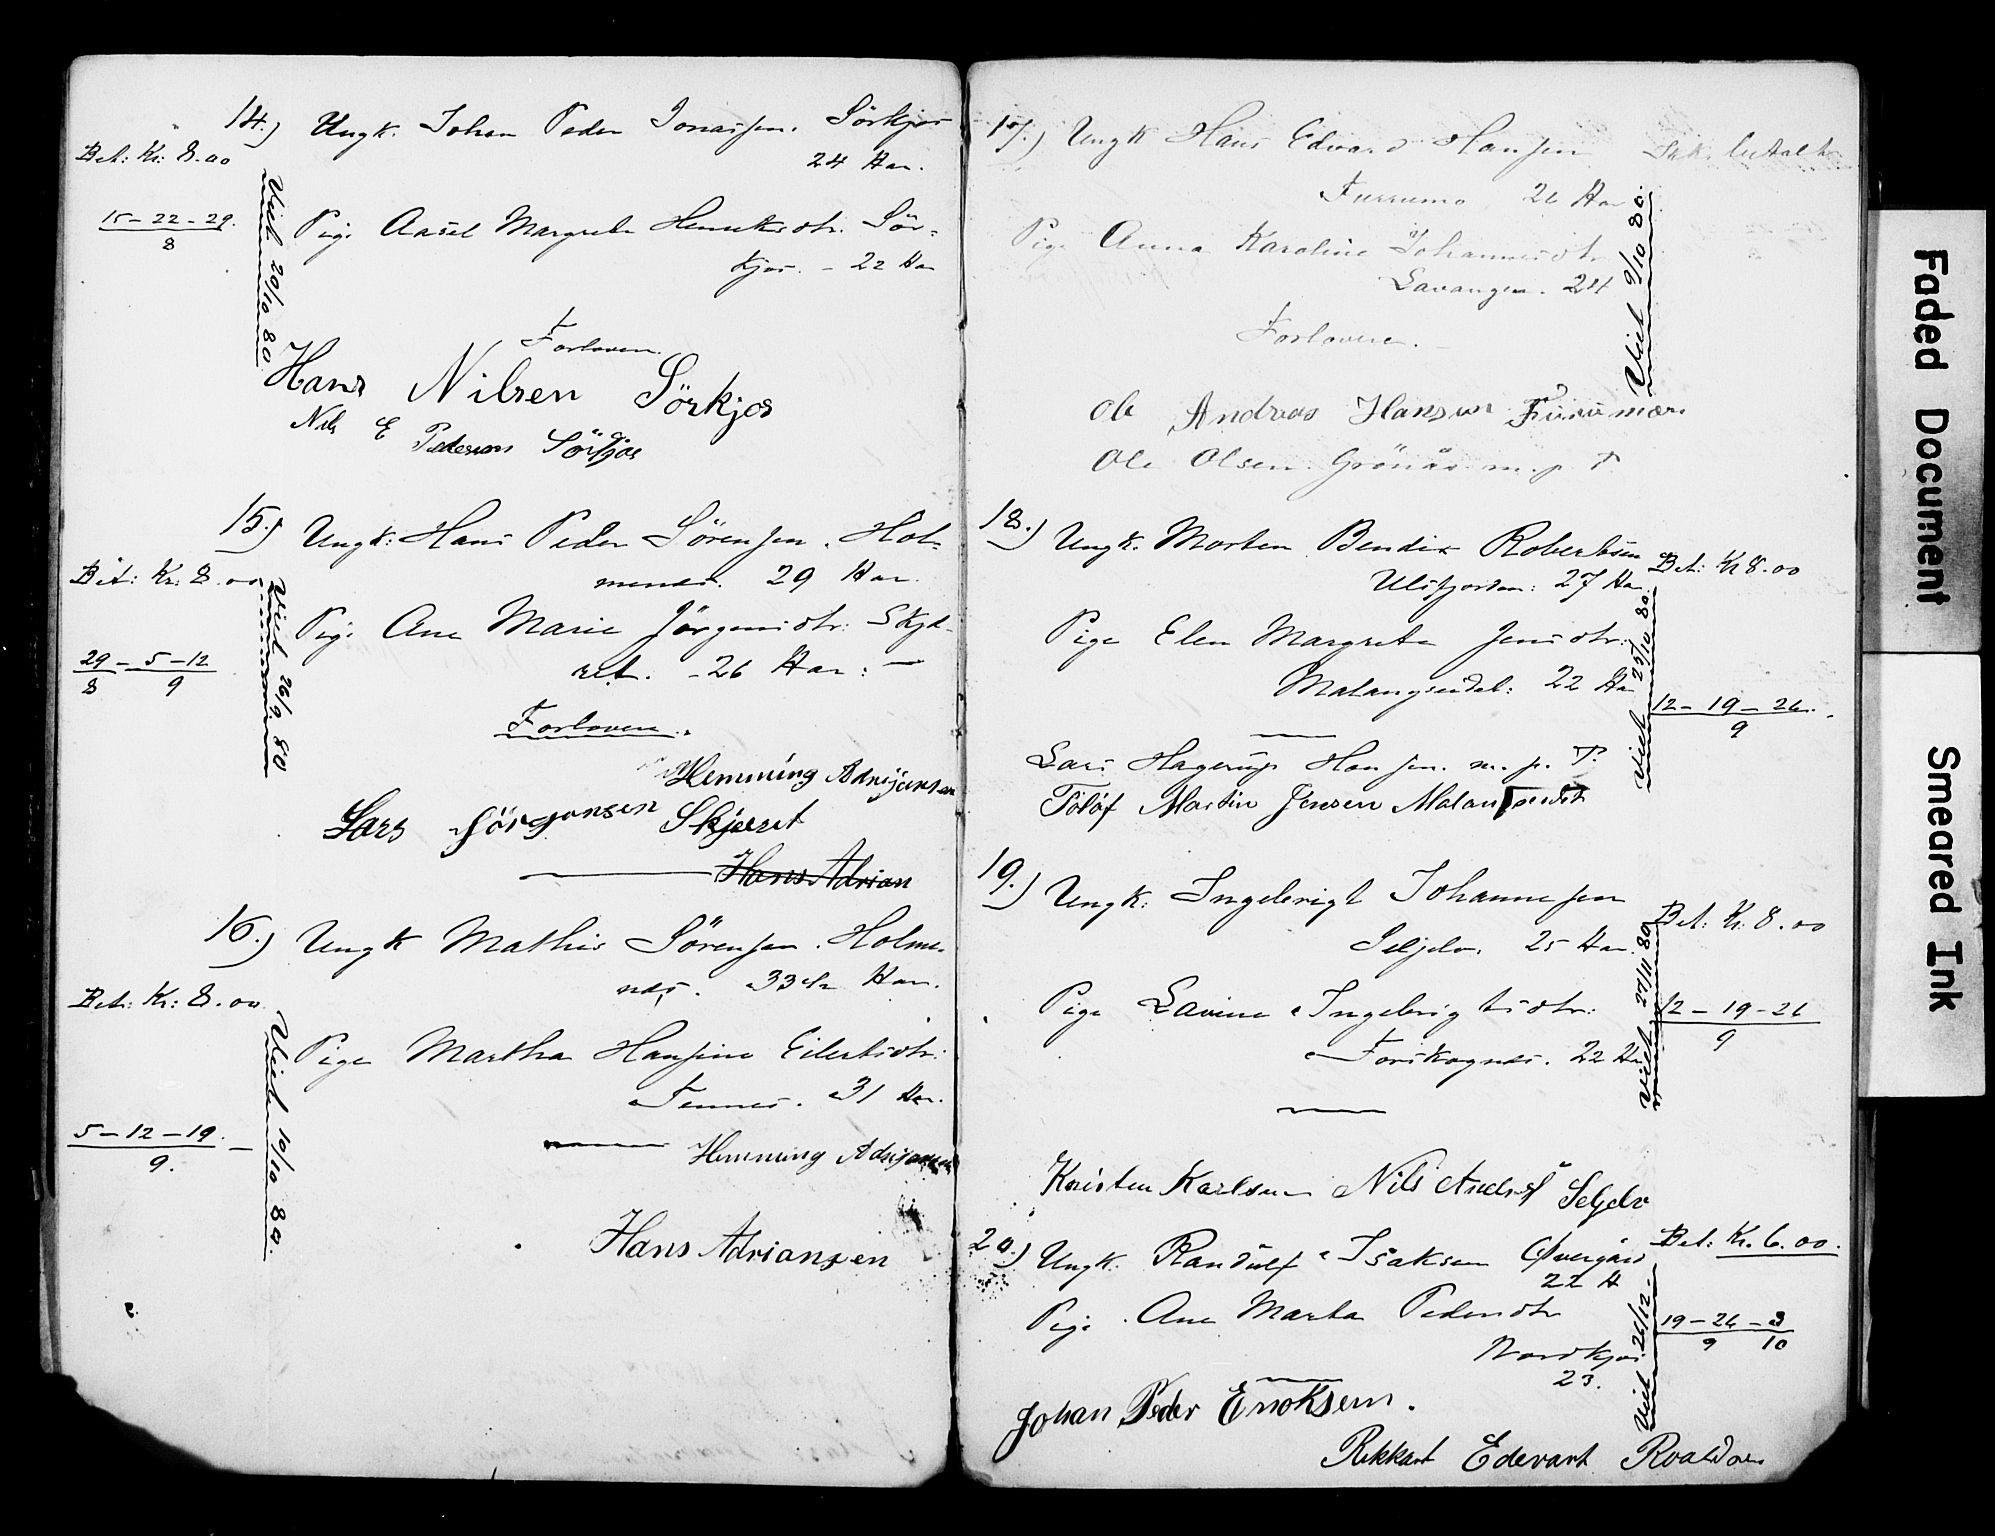 14.) Ungk. Johan Peder Jonassen. Sörkjos
24 Aar.
Bet: Kr: 8.00
15-22-29.
8
Pige Aasel Margrete Henriksdtr. Sör-
kjos. - 22 Aar
Viet 20/10 80
Forlovere.
Hans Nilsen Sörkjos
Nils E Pedersen Sörkjos
15.) Ungk: Hans Peder Sörensen. Hol-
menes. 29 Aar.
Bet: Kr: 8.00
Pige Ane Marie Jörgensdtr: Skjæ-
ret. - 26 Aar: -
29 - 5 - 12
8 9
Viet 26/9 80
Forlovere.
Hemming Adrijansen
Lars Jörgensen Skjæret
Hans Adrian
16.) Ungk Mathis Sörensen. Holme-
nes. 33 Aar.
Bet: Kr: 8.00
Pige Martha Hansine Eilertsdtr:
Tennes. 31 Aar.
5-12-19.
9.
Viet 10/10 80.
Hemming Adrijansen
Hans Adriansen
17.) Ungk Hans Edvard Hansen betalt
Furrumo 26 Aar
Pige Anna Karoline Johannesdtr
Lavangen. 24
Viet 9/10 80.
Forlovere.
Ole Andreas Hansen Furumo
Ole Olsen Grönås m. p. P
18.) Ungk. Morten Bendix Robertsen
Ulsfjorden: 27 Aar
Bet: Kr 8.00
Pige Elen Margrete Jensdtr:
Malangseidet: 22 Aar
12-19-26.
9
Viet 25/10 80.
Lars Hagerup Hansen. m. p. P.
Tolöf Martin Jensen Malangseidet
19.) Ungk: Ingebrigt Johannesen
Seljelv. 25 Aar.
Bet: Kr: 8.00
Pige Lavine Ingebrigtsdtr:
Forskognes. 22 Aar
12-19-26
9
Viet 27/11 80
Kristen Karlsen Nils Seljelv
20.) Ungk. Randulf Isaksen Øvergård
22 A
Bet: Kr. 6.00.
Pige. Ane Marta Pedersdtr
Nordkjos
23.
19-26-3
9 10
Viet 26/12-
Johan Peder Enoksen.
Rikkart Edevart Roaldsen
Faded Document
Smeared Ink